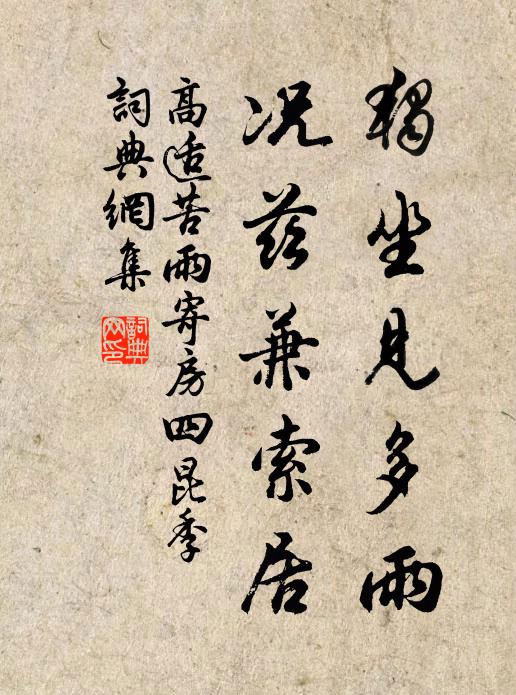 獨坐見多雨
况兹兼索居
高适苦雨寄房四昆季
詞典網集
詞典網印